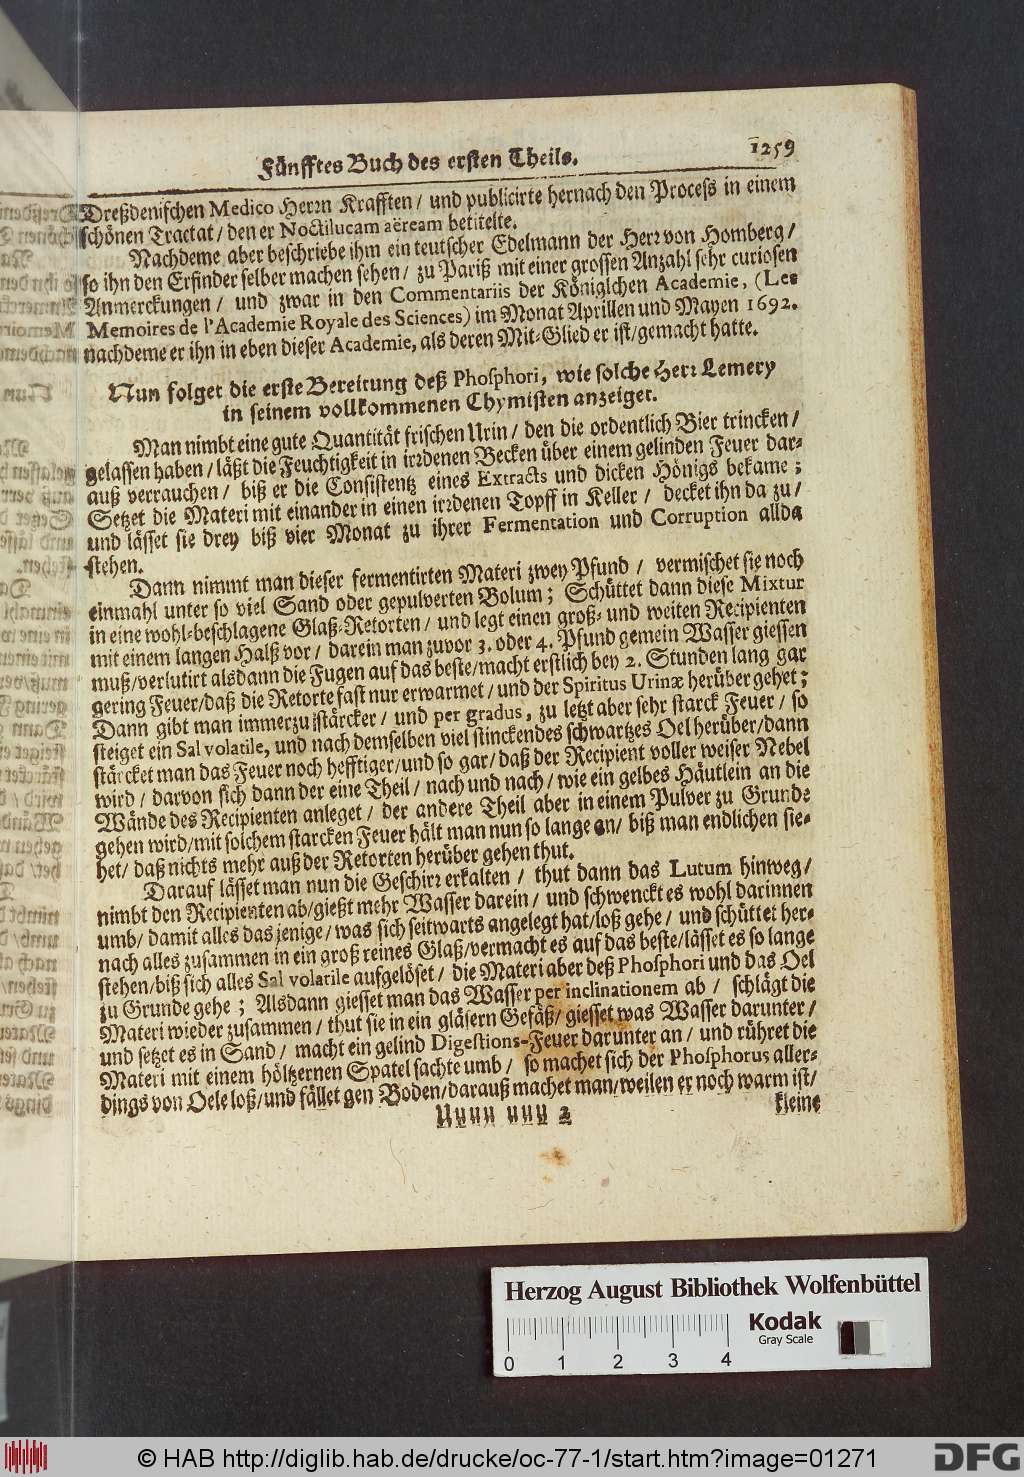 Fünfftes Buch des ersten Theils. 1259
Dreßdenischen Medico Herrn Krafften / und publicirte hernach den Process in einem
schönen Tractat / den er Noctilucam aëream betitelte.
Nachdeme aber beschriebe ihm ein teutscher Edelmann der Herr von Homberg /
so ihn den Erfinder selber machen sehen / zu Pariß mit einer grossen Anzahl sehr curiosen
Anmerckungen / und zwar in den Commentariis der Königlchen Academie, (Les
Memoires de l'Academie Royale des Sciences) im Monat Aprillen und Mayen 1692.
nachdeme er ihn in eben dieser Academie, als deren Mit-Glied er ist/gemacht hatte.
Nun folget die erste Bereitung deß Phosphori, wie solche Herr Lemery
in seinem vollkommenen Chymisten anzeiget.
Man nimbt eine gute Quantität frischen Urin / den die ordentlich Bier trincken /
gelassen haben / läßt die Feuchtigkeit in irrdenen Becken über einem gelinden Feuer dar-
auß verrauchen / biß er die Consistentz eines Extracts und dicken Hönigs bekame ;
Setzet die Materi mit einander in einen irrdenen Topff in Keller / decket ihn da zu /
und lässet sie drey biß vier Monat zu ihrer Fermentation und Corruption allda
stehen.
Dann nimmt man dieser fermentirten Materi zwey Pfund / vermischet sie noch
einmahl unter so viel Sand oder gepulverten Bolum ; Schüttet dann diese Mixtur
in eine wohl-beschlagene Glaß-Retorten / und legt einen groß- und weiten Recipienten
mit einem langen Halß vor / darein man zuvor 3. oder 4. Pfund gemein Wasser giessen
muß/verlutirt alsdann die Fugen auf das beste/macht erstlich bey 2. Stunden lang gar
gering Feuer/daß die Retorte fast nur erwarmet / und der Spiritus Urinæ herüber gehet ;
Dann gibt man immerzu stärcker / und per gradus, zu letzt aber sehr starck Feuer / so
steiget ein Sal volatile, und nach demselben viel stinckendes schwartzes Oel herüber/dann
stärcket man das Feuer noch hefftiger/und so gar/daß der Recipient voller weiser Nebel
wird / darvon sich dann der eine Theil / nach und nach / wie ein gelbes Häutlein an die
Wände des Recipienten anleget / der andere Theil aber in einem Pulver zu Grunde
gehen wird/mit solchem starcken Feuer hält man nun so lange an/ biß man endlichen sie-
het/ daß nichts mehr auß der Retorten herüber gehen thut.
Darauf lässet man nun die Geschirr erkalten / thut dann das Lutum hinweg/
nimbt den Recipienten ab/gießt mehr Wasser darein / und schwenckt es wohl darinnen
umb/ damit alles das jenige/ was sich seitwarts angelegt hat/loß gehe / und schüttet her-
nach alles zusammen in ein groß reines Glaß/vermacht es auf das beste/lässet es so lange
stehen/biß sich alles Sal volatile aufgelöset / die Materi aber deß Phosphori und das Oel
zu Grunde gehe ; Alsdann giesset man das Wasser per inclinationem ab / schlägt die
Materi wieder zusammen / thut sie in ein gläsern Gefäß/ giesset was Wasser darunter /
und setzet es in Sand / macht ein gelind Digestions-Feuer darunter an / und rühret die
Materi mit einem höltzernen Spatel sachte umb / so machet sich der Phosphorus aller-
dings von Oele loß/und fället gen Boden/darauß machet man/weilen er noch warm ist/
Uuuu uuu 2 kleine
Herzog August Bibliothek Wolfenbüttel
Kodak
Gray Scale
0 1 2 3 4
© HAB http://diglib.hab.de/drucke/oc-77-1/start.htm?image=01271
DFG